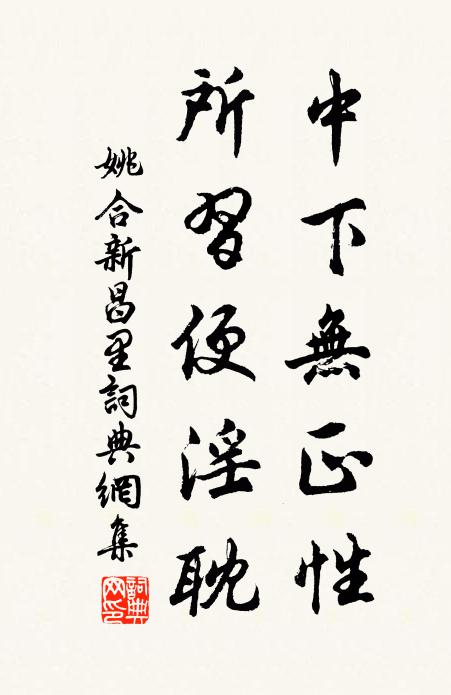 中下無正性
所習便淫耽
姚合新昌里詞典網集
詞典網印